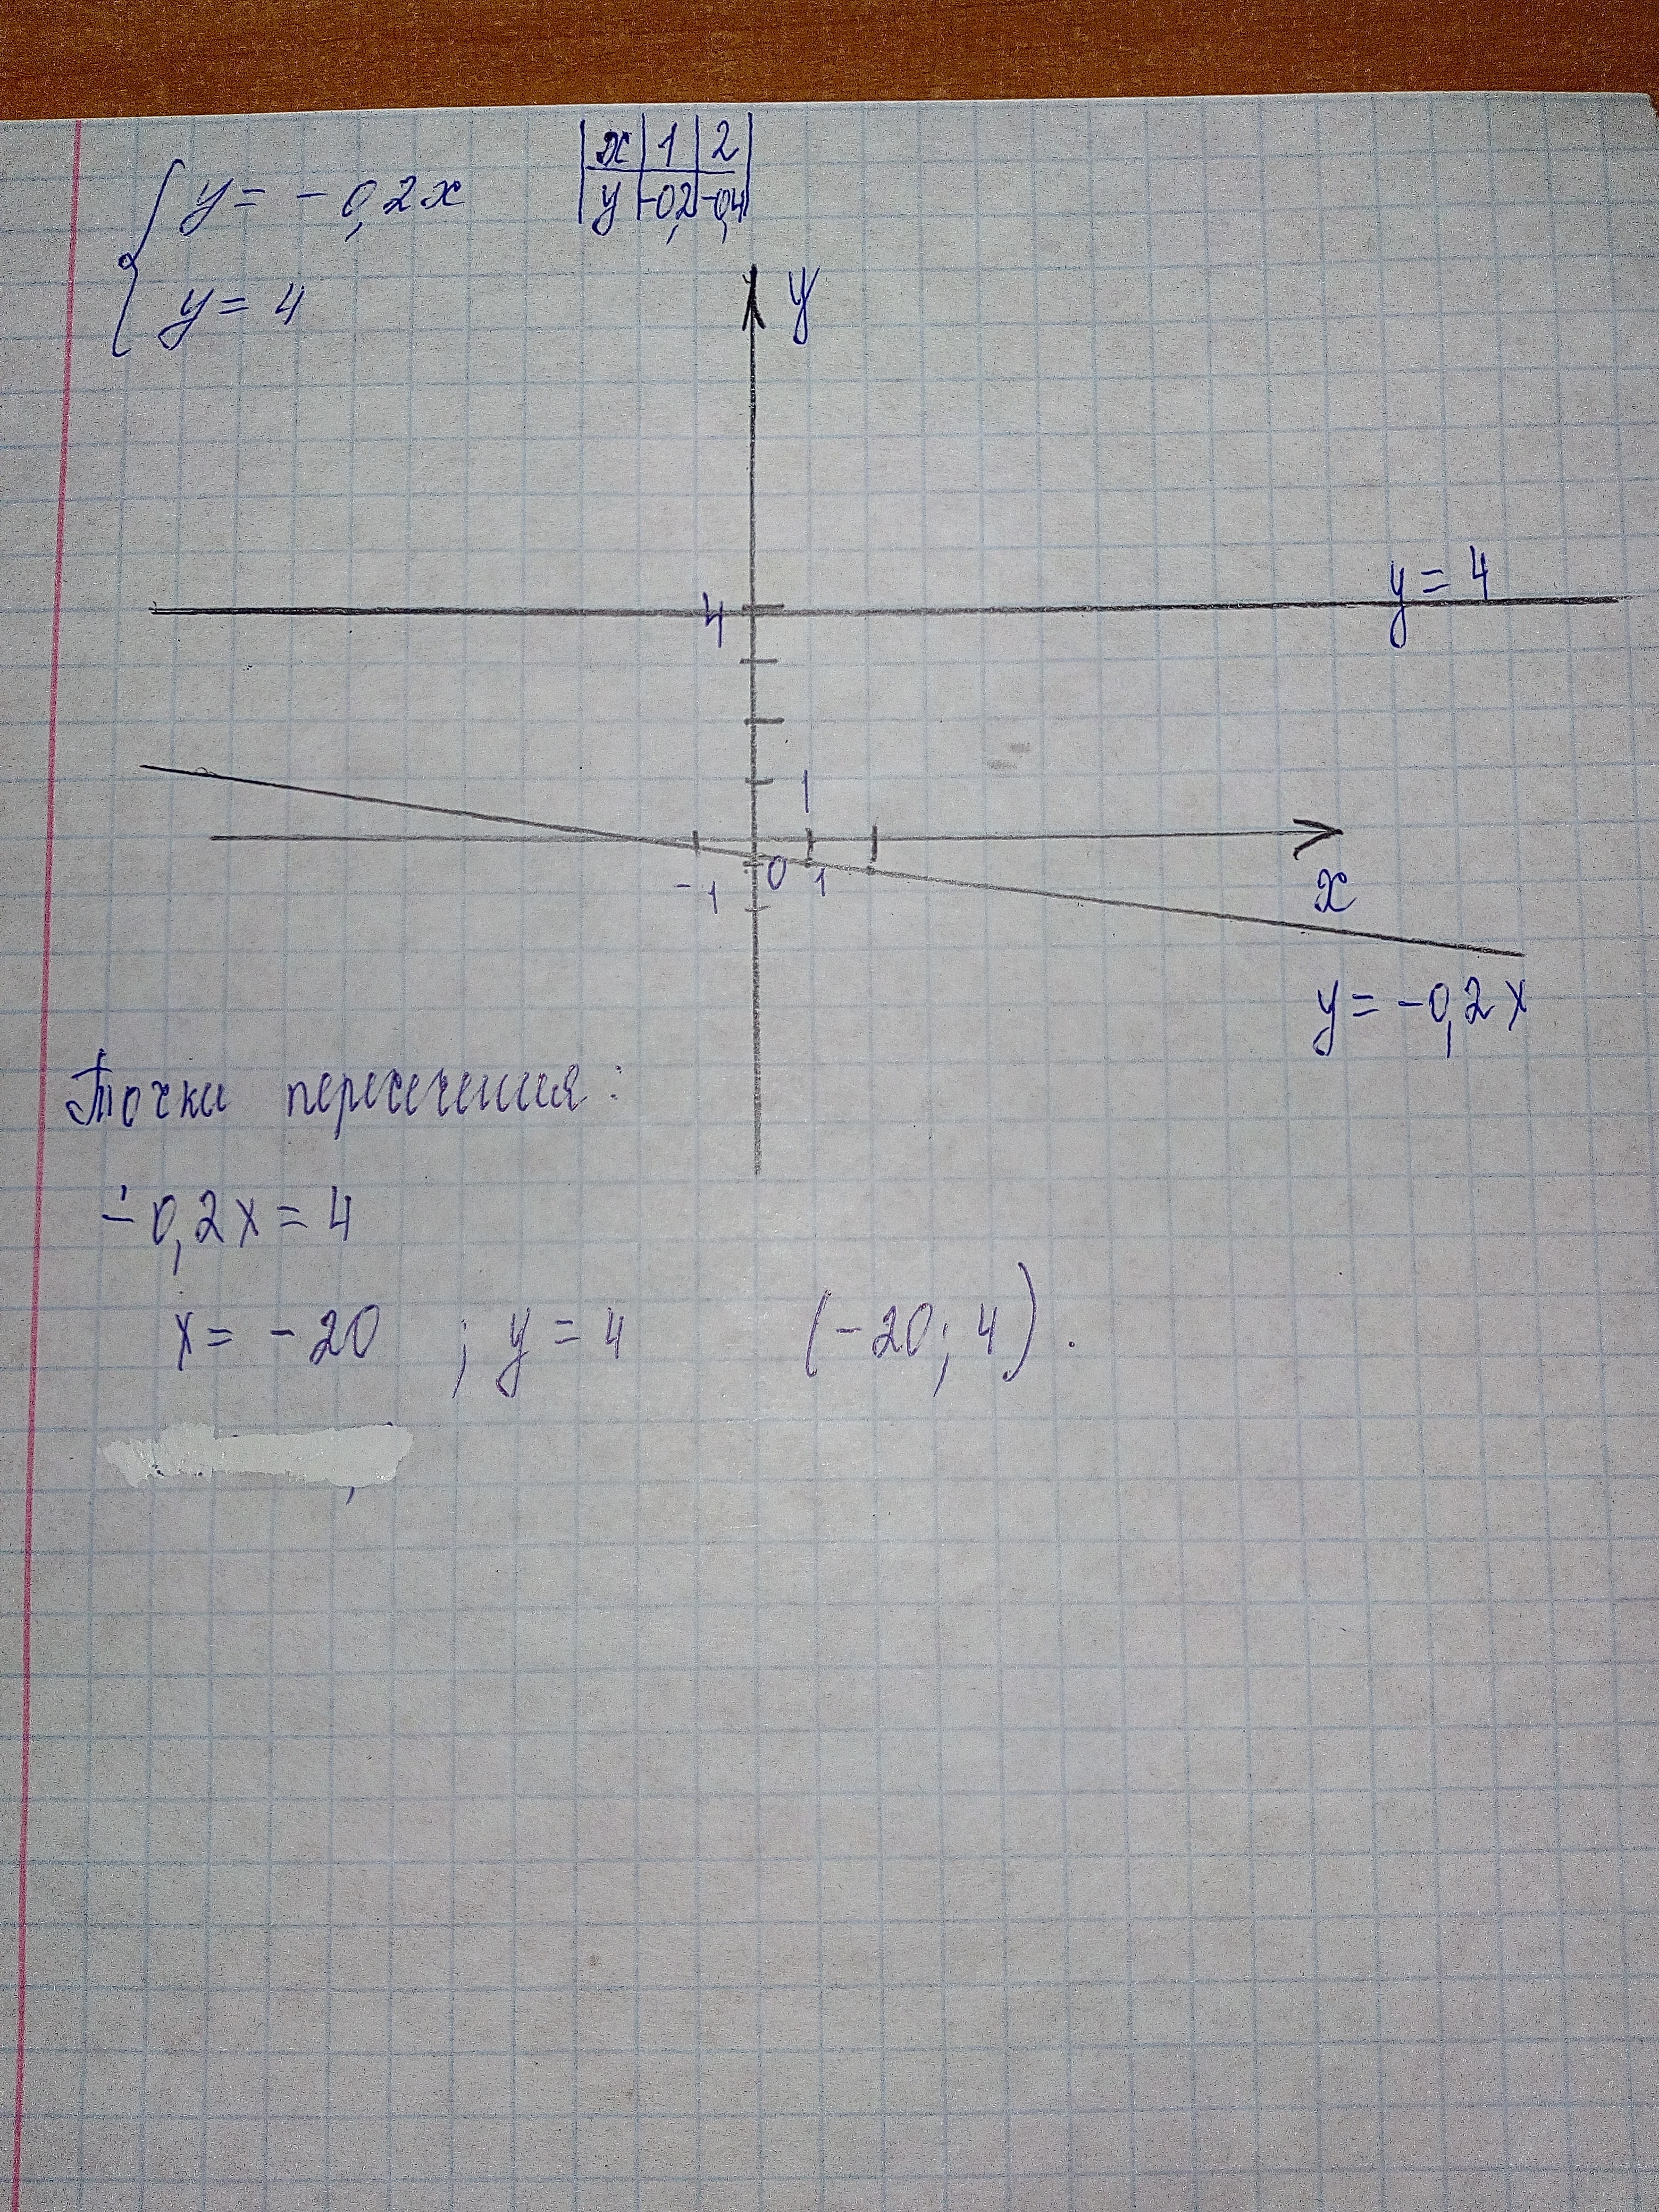 y = -0,2x
y = 4
x 1 2
y -0,2 -0,4
y
y = 4
4
1
-1 0 1
x
y = -0,2x
Точки пересечения:
-0,2x = 4
x = -20 ; y = 4 (-20; 4).